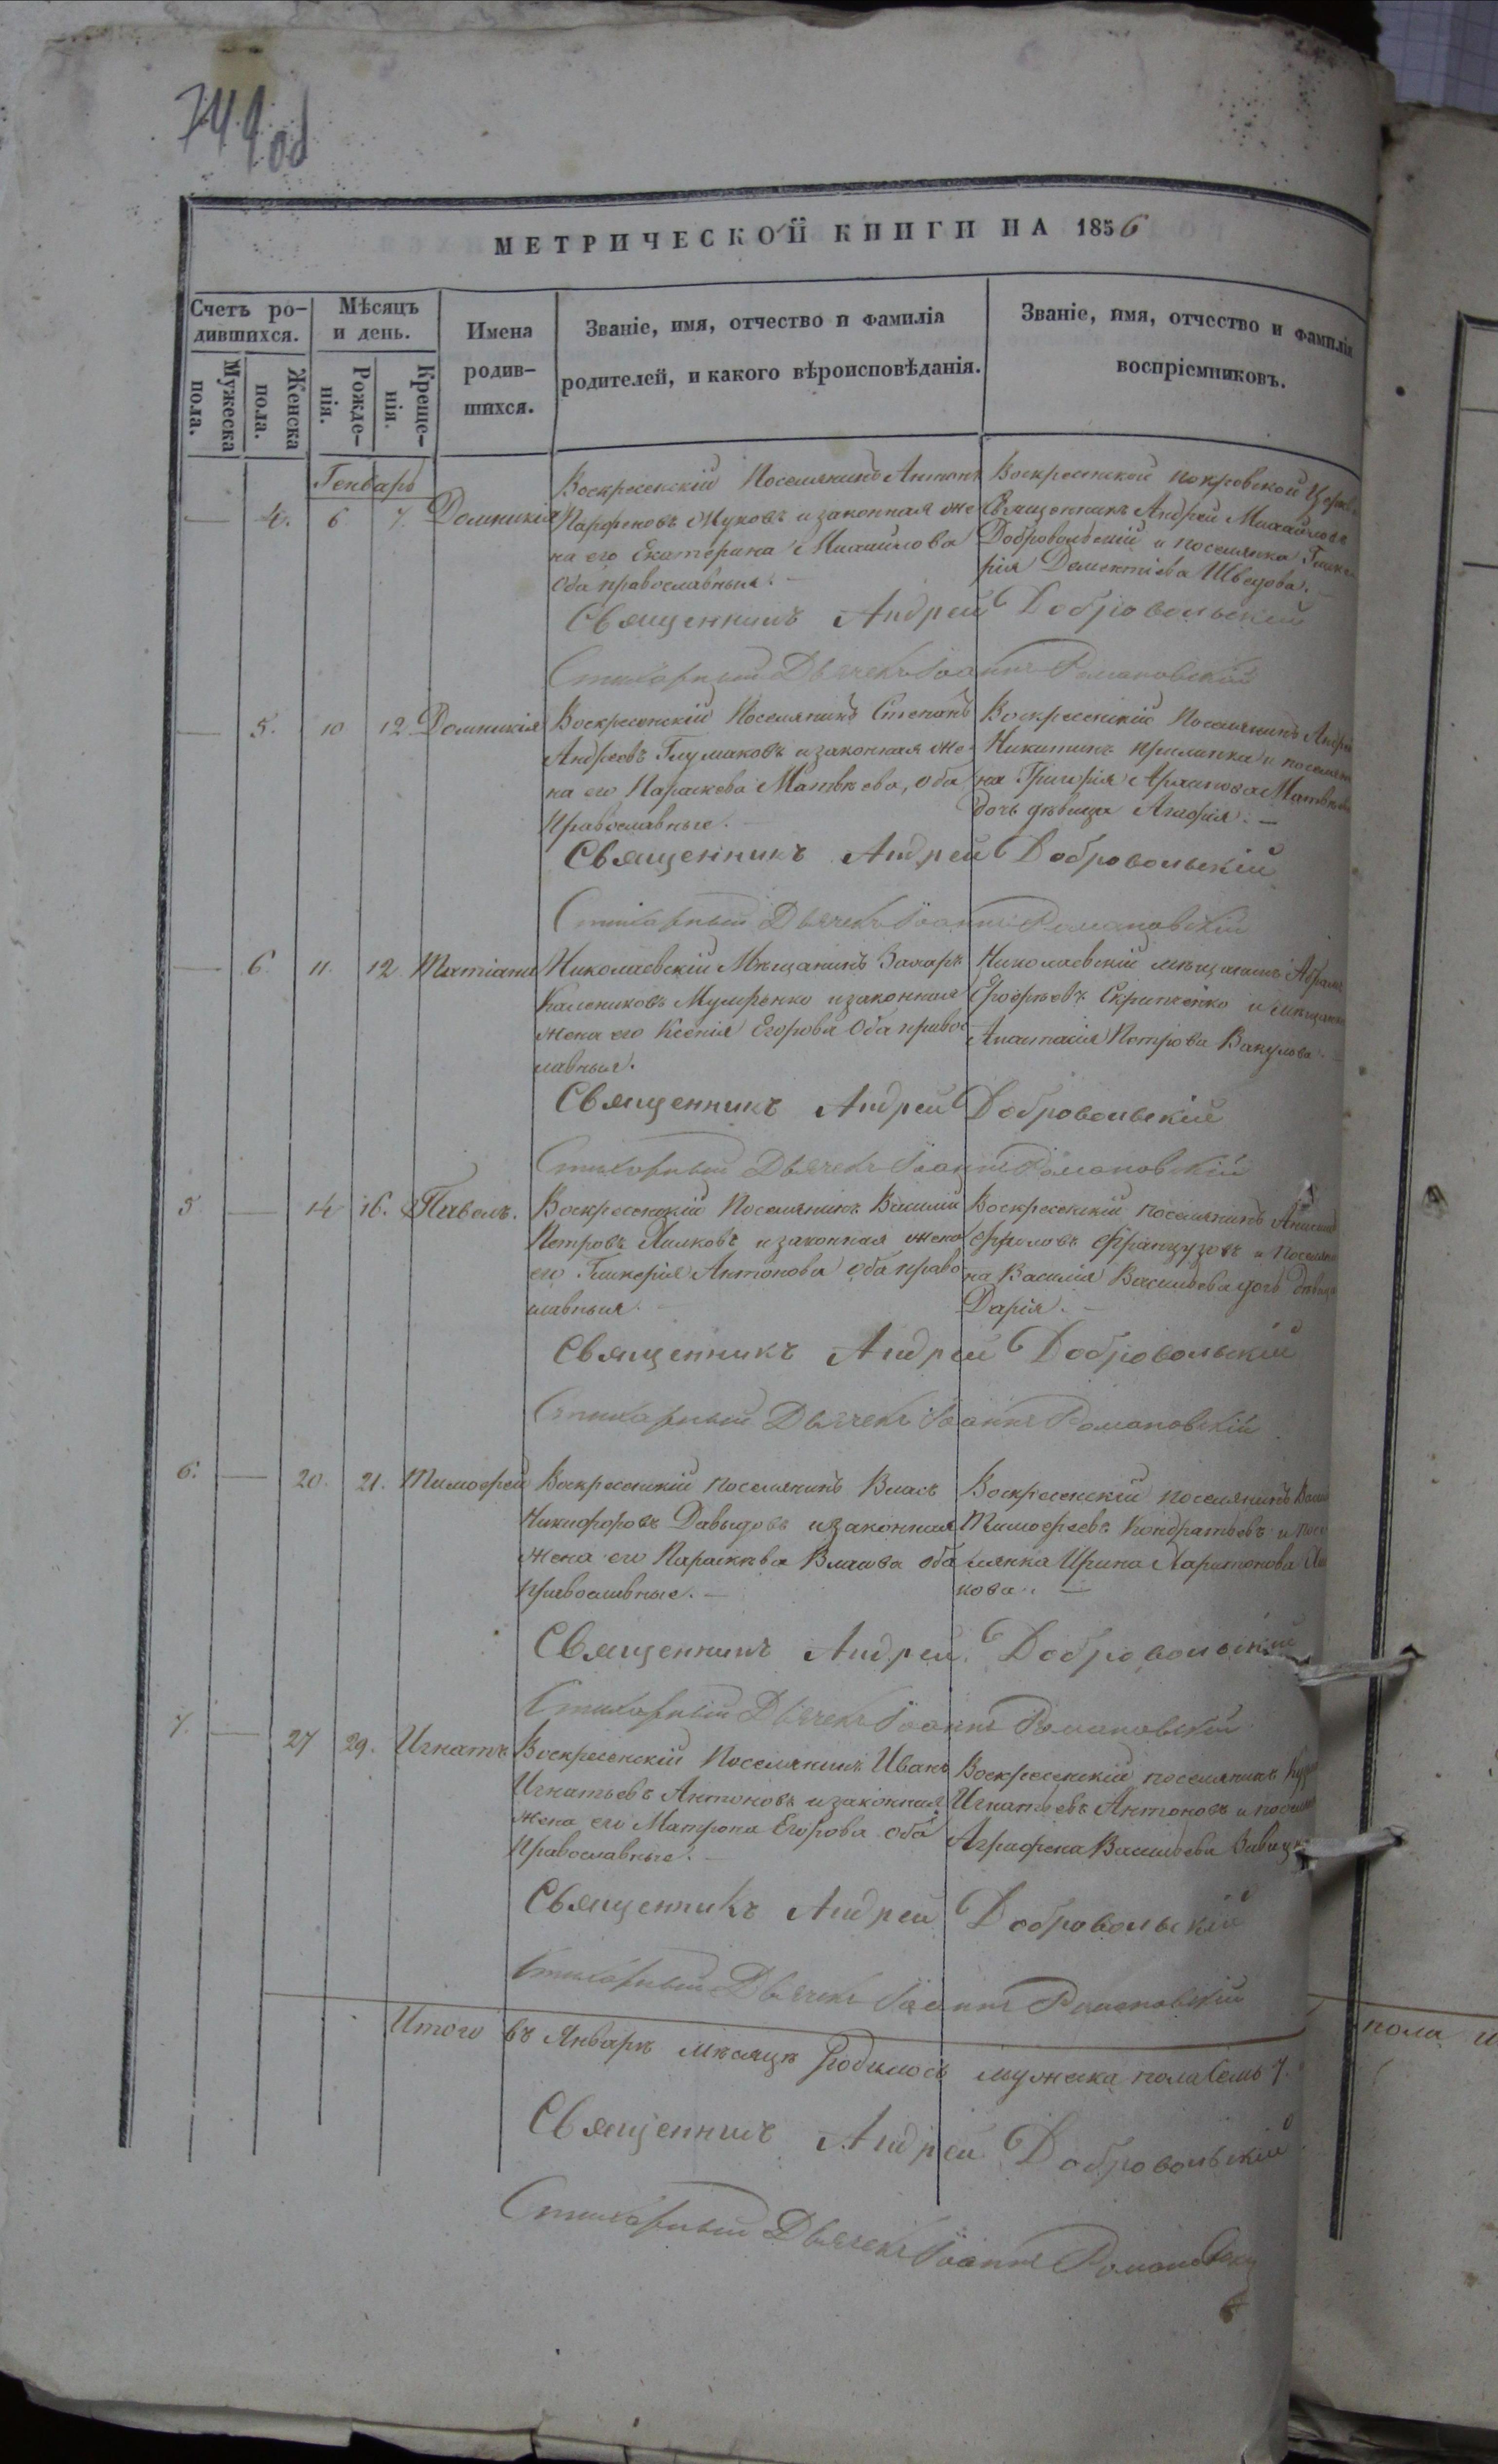 749 об
МЕТРИЧЕСКОЙ КНИГИ НА 1856
Счетъ ро-
дившихся.
Мужеска
пола.
Женска
пола.
Мѣсяцъ
и день.
Рожде-
нія.
Креще-
нія.
Имена
родив-
шихся.
Званіе, имя, отчество и фамилія
родителей, и какого вѣроисповѣданія.
Званіе, имя, отчество и фамилія
воспріемниковъ.
Генварь
— 4. 6 7. Домникія
Воскресенскій Поселянинъ Антонъ
Парфеновъ Жуковъ и законная же
на его Екатерина Михайлова
оба православныя. —
Воскресенской покровской Церкви
Священникъ Андрей Михайловъ
Добровольскій и поселянка
рія Дементіева Шведова. —
Священникъ Андрей Добровольскій
Стихарный Дьячекъ Іоаннъ Романовскій
— 5. 10 12 Домникія
Воскресенскій Поселянинъ Степанъ
Андреевъ Глумаковъ и законная же
на его Параскева Матвѣева, оба
Православные. —
Воскресенскій Поселянинъ Андрей
Никитинъ Прилипка и поселяни
на Григорія Матвѣева
дочь дѣвица —
Священникъ Андрей Добровольскій
Стихарный Дьячекъ Іоаннъ Романовскій
— 6. 11. 12 Татіана
Николаевскій Мѣщанинъ Захаръ
Калениковъ и законная
жена его Ксенія Егорова оба право
лавныя.
Николаевскій мѣщанинъ Абрамъ
Ерофѣевъ Скрипченко и мѣщанка
Анастасія Петрова Вакулова. —
Священникъ Андрей Добровольскій
Стихарный Дьячекъ Іоаннъ Романовскій
5 — 14 16. Павелъ.
Воскресенскій Поселянинъ Василій
Петровъ Лилковъ и законная жена
его Гликерія Антонова оба право
лавныя. —
Воскресенскій поселянинъ
Фроловъ Французовъ и поселяни
на Василія Васильева дочь дѣвица
Дарія. —
Священникъ Андрей Добровольскій
Стихарный Дьячекъ Іоаннъ Романовскій
6. — 20. 21. Тимофей
Воскресенскій поселянинъ Власъ
Никифоровъ Давыдовъ и законная
жена его Параскѣва Власова оба
Православные. —
Воскресенскій поселянинъ
Тимофеевъ Кондратьевъ и посе
лянка Ирина Харитонова
кова. —
Священникъ Андрей Добровольскій
Стихарный Дьячекъ Іоаннъ Романовскій
7. — 27 29. Игнатъ
Воскресенскій Поселянинъ Иванъ
Игнатьевъ Антоновъ и законная
жена его Матрона Егорова оба
Православные. —
Воскресенскій поселянинъ
Игнатьевъ Антоновъ и поселян
Аграфена Васильева
Священникъ Андрей Добровольскій
Стихарный Дьячекъ Іоаннъ Романовскій
Итого въ Январѣ мѣсяцѣ родилось мужеска пола семь 7.
Священникъ Андрей Добровольскій
Стихарный Дьячекъ Іоаннъ Романовскій
пола и